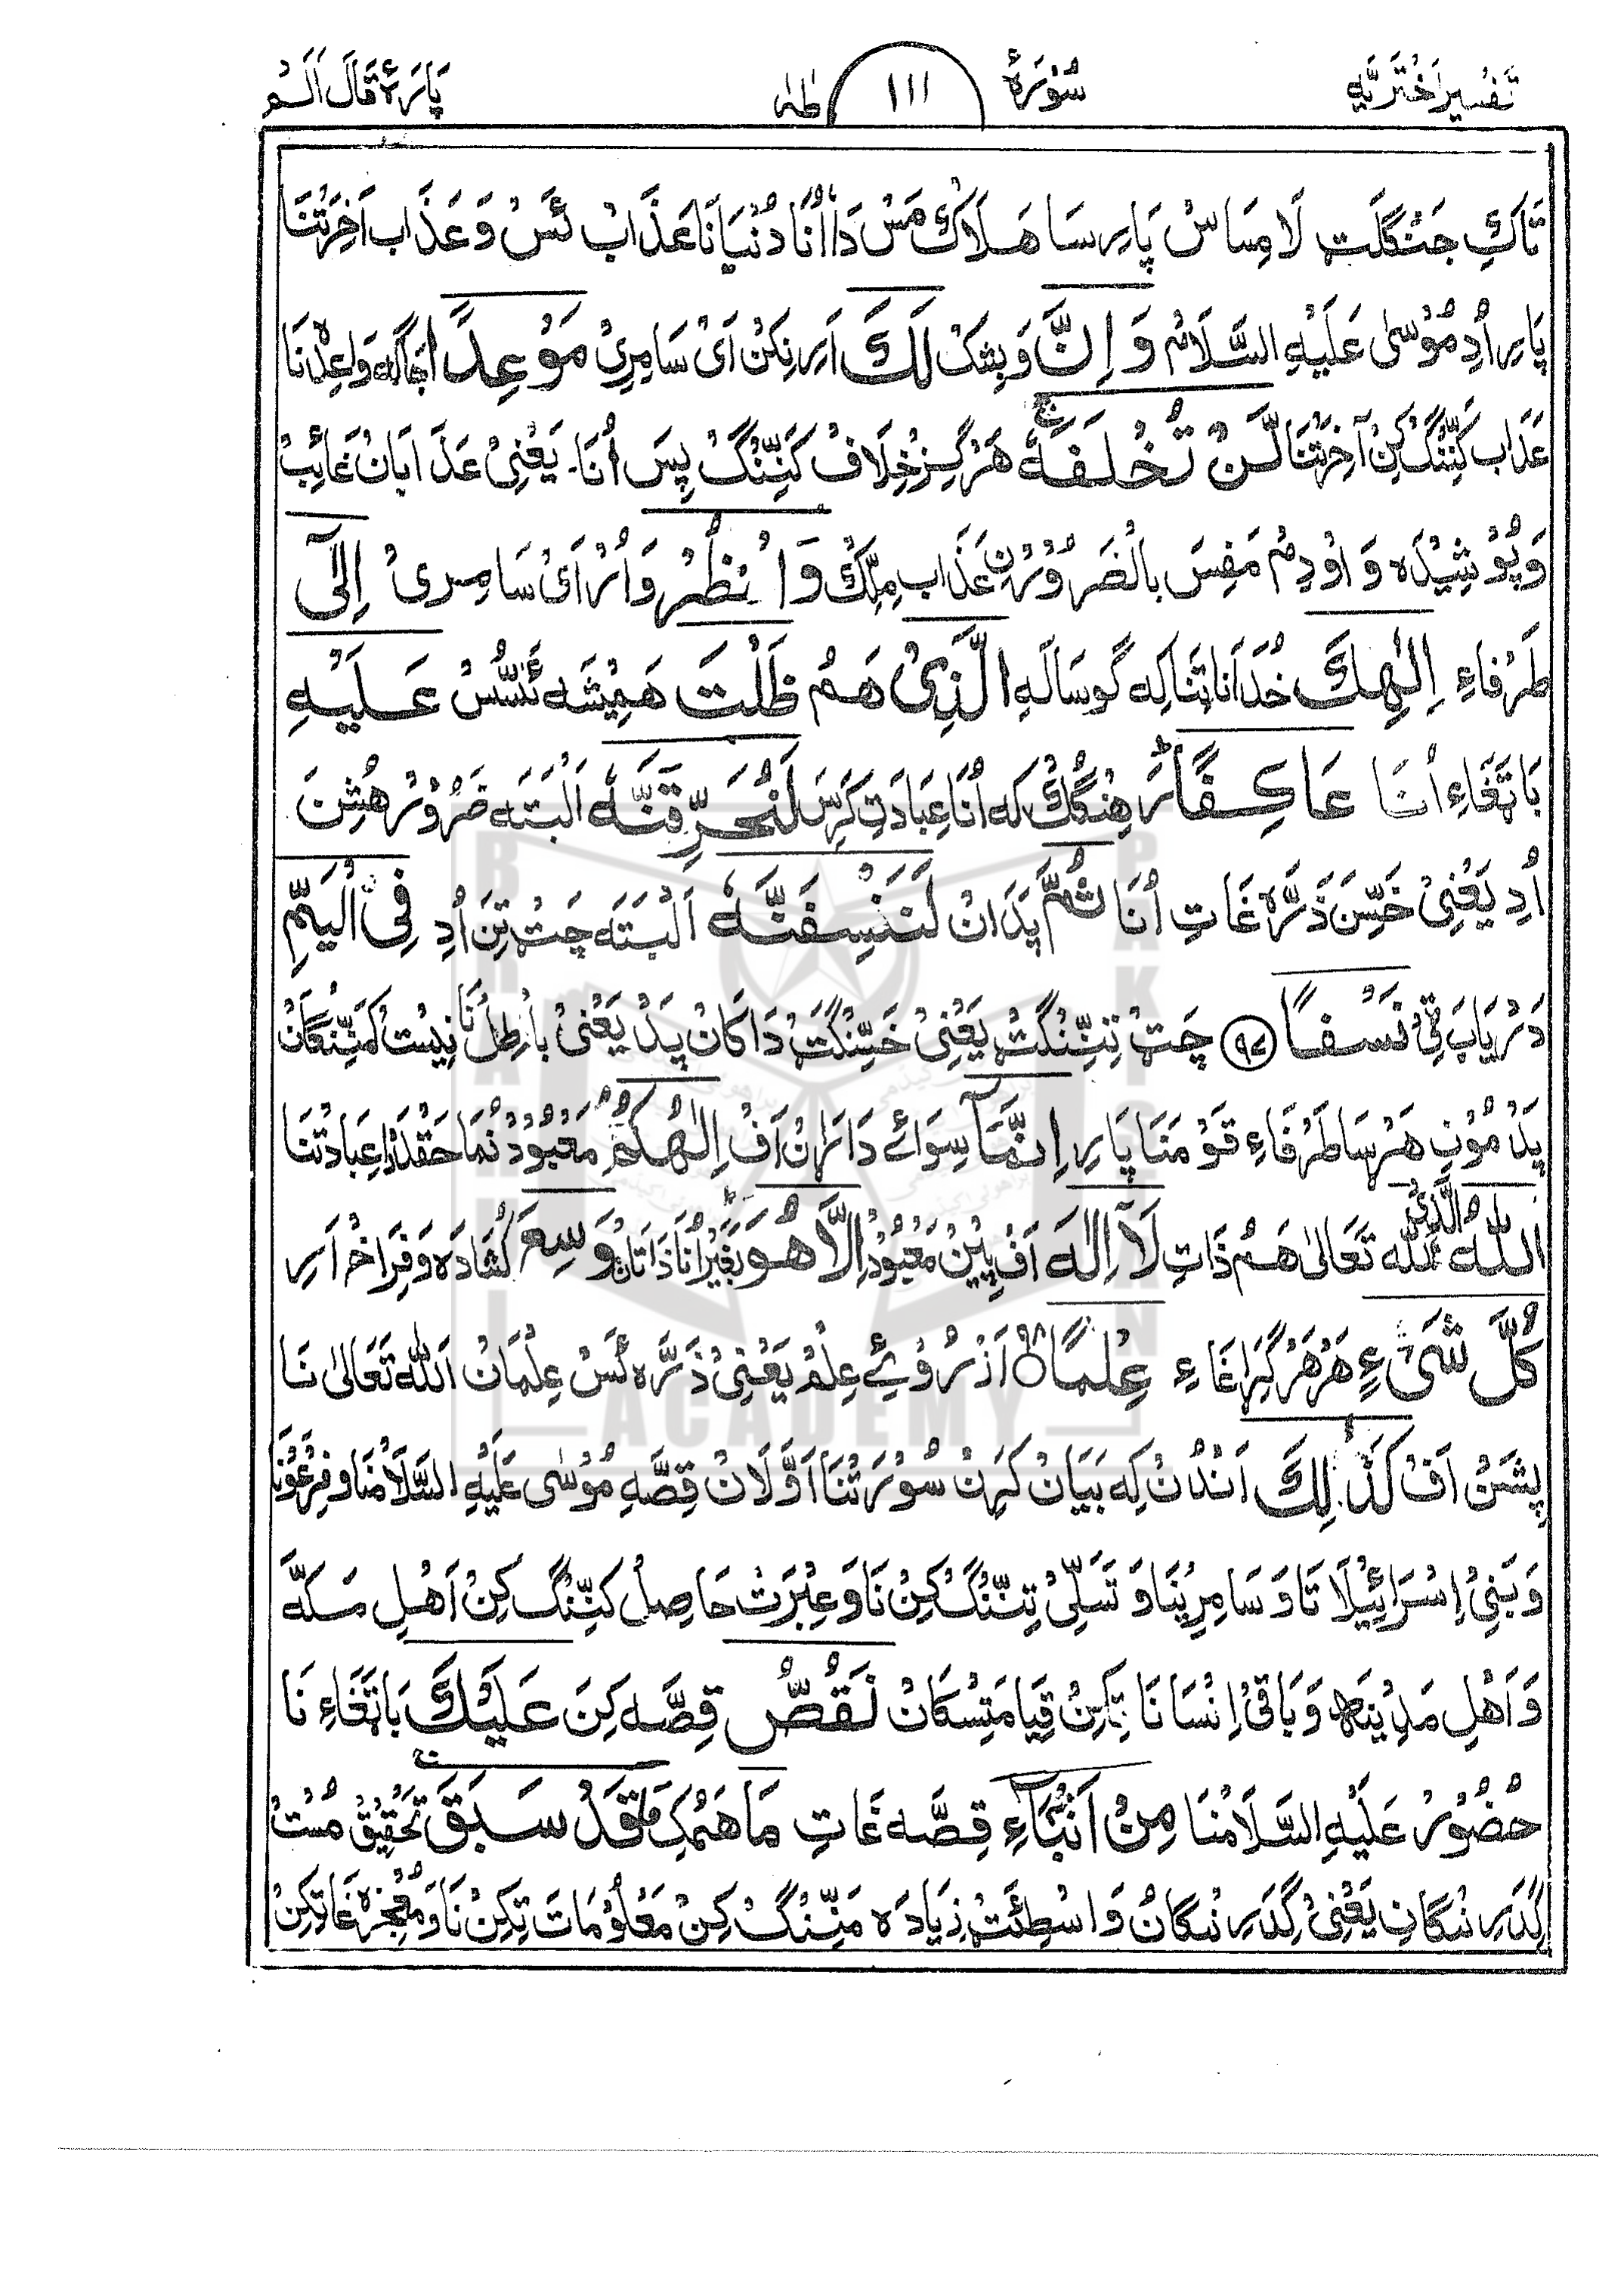 تَفسِیرِ اَختَرِیَّہ سُوْرَۂ ١١١ طٰہٰ پَارَۂ قَالَ اَلَمْ
تَاکِ جَنْگَلَت لَا مِسَاسْ پَارِسَا هَلَاکْ مَسْ دَا اُنَا دُنْیَانَا عَذَابْ ئَسْ وَ عَذَابِ اٰخِرَتْنَا
پَارِ اُدِ مُوْسٰی عَلَیْہِ السَّلَامْ وَ اِنَّ وَ بِشَکْ لَكَ اَرِ نِکِنْ اَیْ سَامِرِیْ مَوْعِدًا وَاعِدْنَا
عَذَاب کَنِّنْگ کِنْ آخِرَتْنَا لَّنْ تُخْلَفَهٗ هَرْگِزْ خِلَافْ کَنِّنْگ پِسَ اُنَا۔ یَعْنِیْ عَذَابَانْ غَائِبْ
وَ پُوْشِیْدَہ وَ اوْدِمْ مَفِسَ بِالْضَرُوْرْ نِ عَذَاب مِلِّکْ وَ انْظُرْ وَ اُرْ اَیْ سَامِرِیْ اِلٰۤی
طَرْفَاءِ اِلٰهِكَ خُدَا نَا تِنَا کِہ گوسَالَہِ الَّذِیْ هَمْ ظَلْتَ هَمِیْشَہ ئَسُّسْ عَلَیْهِ
بَاتَغَاءِ اُنَا عَاکِفًا ؕ رَهِنْگُکْ کہ اُنَا عِبَادَتِ کَرِسَ لَنُحَرِّقَنَّهٗ اَلْبَتَہ ضَرُوْرْ هُشِنَ
اُدِ یَعْنِیْ خَسِّنَ ذَرَّہ غَاتِ اُنَا ثُمَّ پَدَانْ لَنَنْسِفَنَّهٗ اَلْبَتَہ چَٹ تِنَ اُدِ فِی الْیَمِّ
دَرْیَاپَ ٹِیْ نَسْفًا ٩٧ چَٹْ تِنِّنْگَٹْ یَعْنِیْ خَسِّنْگَٹْ دَا کَانْ پَدْ یَعْنِیْ بَاطِلْ نَا نِیْسْت کَنِّنْگَانْ
پَدْ مُوْنِ هَرْسَا طَرْفَاءِ قَوْمْنَا پَارِ اِنَّمَاۤ سِوَائے دَارَانْ اَفْ اِلٰهُکُمُ مَعْبُوْدْ نُمَا حَقْدَارِ عِبَادَتْنَا
اللّٰهُ اَللّٰہ تَعَالٰی الَّذِیْ هَمْ ذَاتِ لَاۤ اِلٰهَ اَفْ پِیْنْ مَعْبُوْدْ اِلَّا هُوَ ؕ بَغَیْرْ اُنَا ذَاتَانْ وَسِعَ کُشَادَہ وَ فَرَاخْ اَرِ
کُلَّ شَیْءٍ هَرْ هَرْ گِرَاغَاءِ عِلْمًا ٩٨ اَزْ رُوْئے عِلْمْ یَعْنِیْ ذَرَّہ ئَسْ عِلْمَانْ اَللّٰہ تَعَالٰی نَا
پِشَنْ اَفْ کَذٰلِكَ اَنْدُنْ کِہ بَیَانْ کَرِنْ سُوْرَتْنَا اَوَّلَانْ قِصَّہِ مُوْسٰی عَلَیْہِ السَّلَامْنَا وَ فِرْعَوْنَا
وَ بَنِیْ اِسْرَائِیْلَاتَا وَ سَامِرِیْنَا وَ تَسَلِّیْ تِنِّنْگ کِنْ نَا وَ عِبْرَتْ حَاصِلْ کَنِّنْگ کِنْ اَهْلِ مَکَّہ
وَ اَهْلِ مَدِیْنَہ وَ بَاقِیْ اِنْسَانَا تِکِنْ قِیَامَتِسْکَانْ نَقُصُّ قِصَّہ کِنَ عَلَیْكَ بَاتَغَاءِ نَا
حُضُوْرْ عَلَیْہِ السَّلَامْنَا مِنْ اَنْۢبَآءِ قِصَّہ غَاتِ مَا هَمْکِ قَدْ سَبَقَ تَحْقِیْقْ مُسْتْ
گِدَرِنْگَانِ یَعْنِیْ گِدَرِنْگَانْ وَاسْطِئَتْ زِیَادَہ مَنِّنْگ کِنْ مَعْلُوْمَات تِکِنْ نَا وَ مُعْجِزَہ غَاتِکِنْ
BRAHUI ACADEMY PAKISTAN